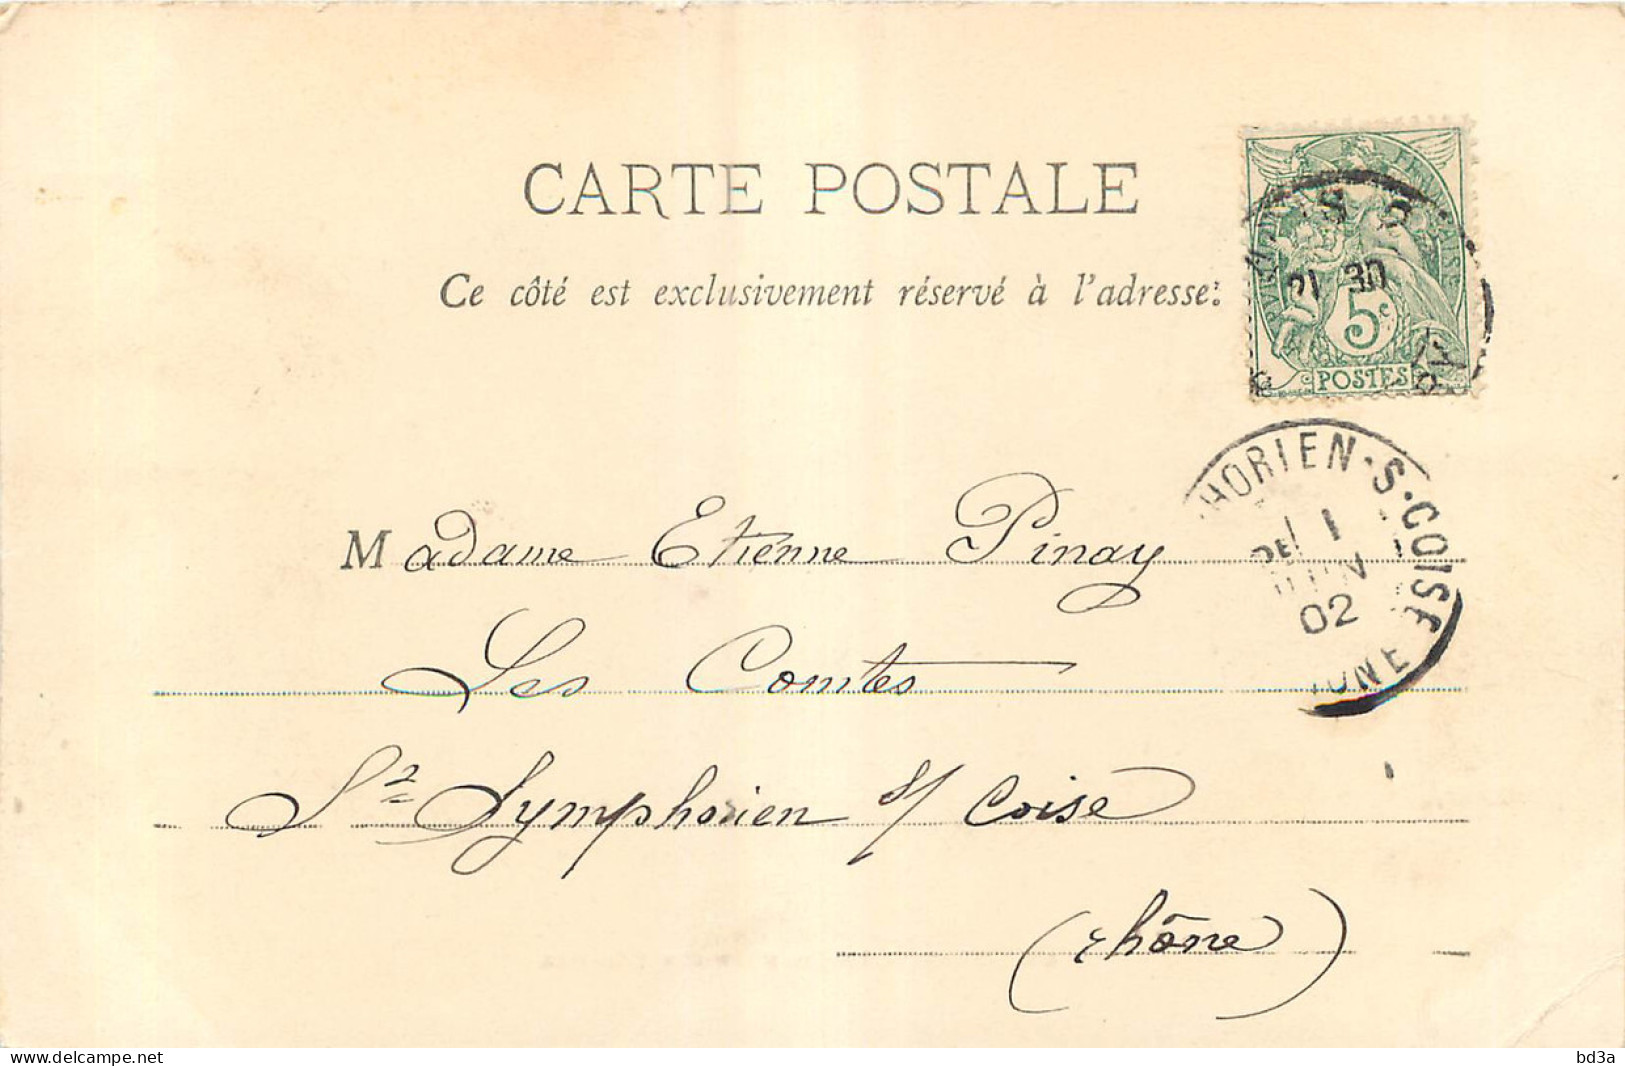 CARTE POSTALE
Ce côté est exclusivement réservé à l'adresse:
5c
POSTES
21 30
HORIEN·S·COISE
1
02
Madame Etienne Pinay
Les Comtes
St Symphorien s/ Coise
(Rhône)
www.delcampe.net
bd3a